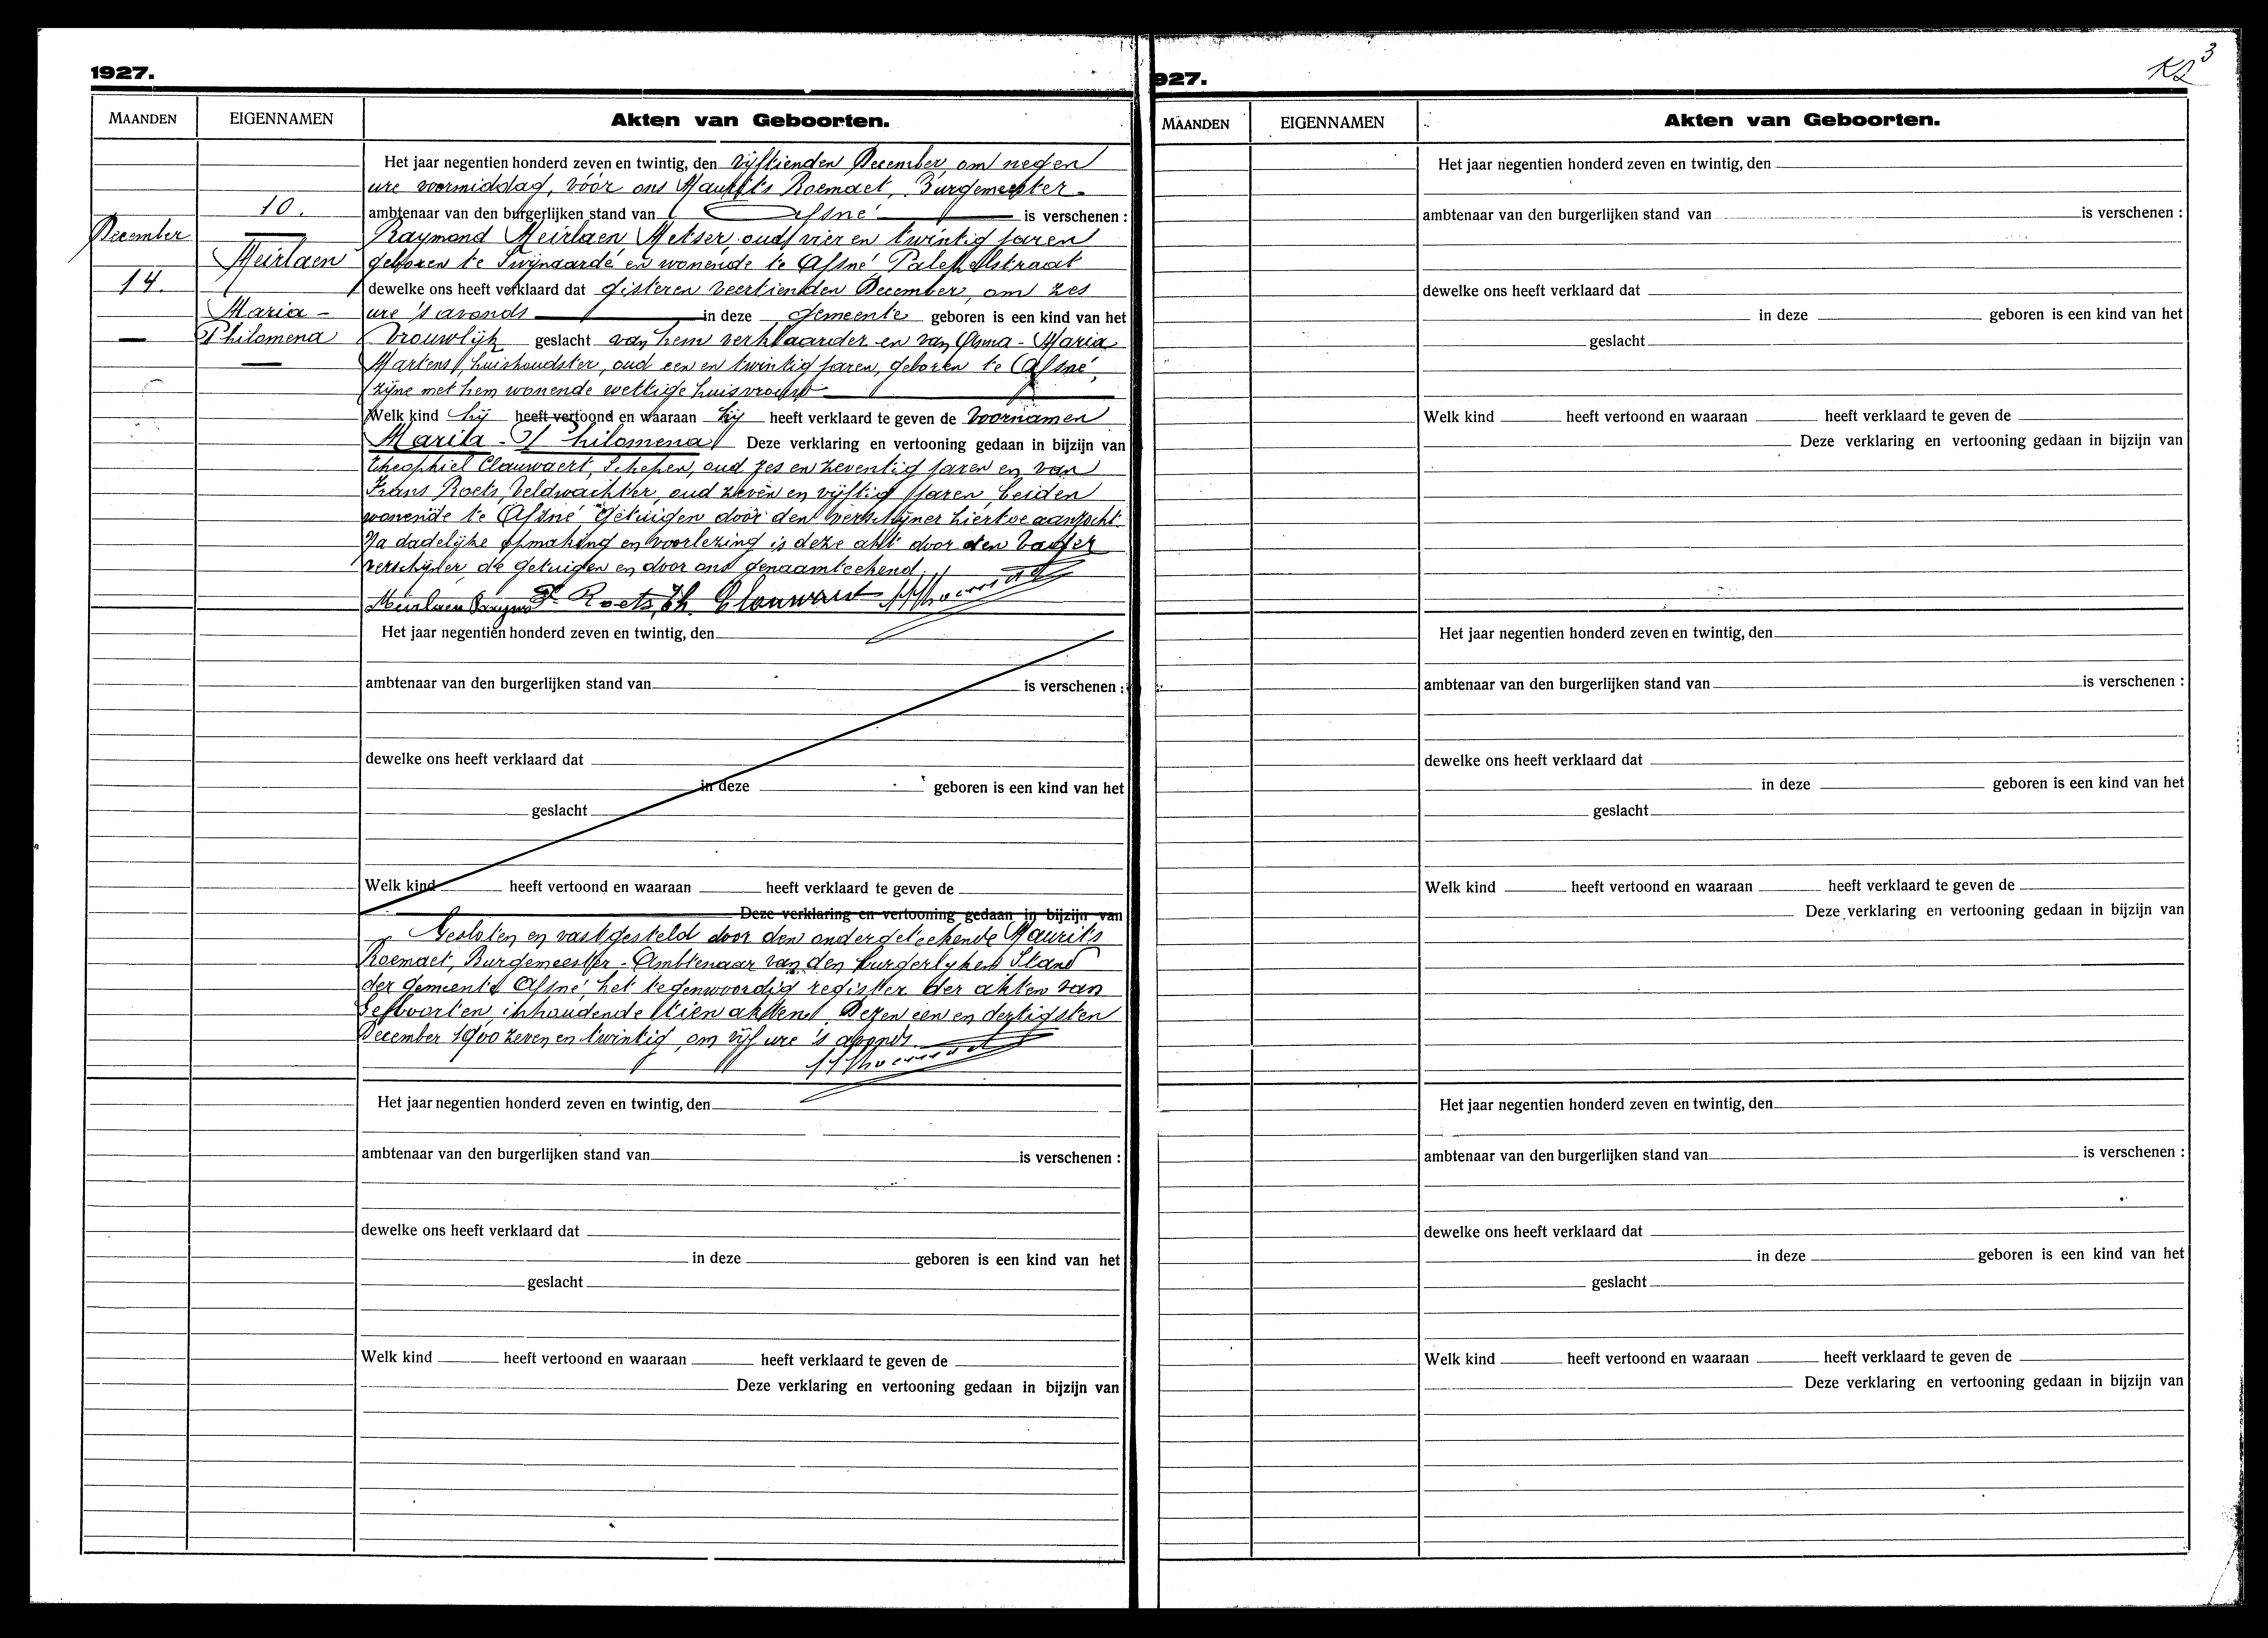 1927.
MAANDEN EIGENNAMEN Akten van Geboorten.
Het jaar negentien honderd zeven en twintig, den vijftienden December, om negen
ure voormiddag, vóór ons Maurits Roemaet, Burgemeester-
10. ambtenaar van den burgerlijken stand van Afsné is verschenen :
December Raymond Meirlaen Metser, oud vier en twintig jaren
Meirlaen geboren te Swijnaarde en wonende te Afsné,
14. dewelke ons heeft verklaard dat gisteren veertienden December, om zes
Maria - ure 's avonds in deze gemeente geboren is een kind van het
Philomena Vrouwlijk geslacht van hem verklaarder en van Maria
Martens, huishoudster, oud een en twintig jaren, geboren te Afsné,
zijne met hem wonende wettige huisvrouw
Welk kind hij heeft vertoond en waaraan hij heeft verklaard te geven de Voornamen
Maria - Philomena Deze verklaring en vertooning gedaan in bijzijn van
Theophiel Clauwaert, Schepen, oud zes en zeventig jaren en van
Frans Roets, Veldwachter, oud zeven en vijftig jaren, beiden
wonende te Afsné getuigen door den verschijner hiertoe aanzocht.
Na dadelijke opmaking en voorlezing is deze akt door den Vader
verschijner, de getuigen en door ons genaamteekend.
Meirlaen Raymond F. Roets, Th. Clauwaert
Het jaar negentien honderd zeven en twintig, den
ambtenaar van den burgerlijken stand van is verschenen :
dewelke ons heeft verklaard dat
in deze geboren is een kind van het
geslacht
Welk kind heeft vertoond en waaraan heeft verklaard te geven de
Deze verklaring en vertooning gedaan in bijzijn van
Gesloten en vastgesteld door den ondergeteekende Maurits
Roemaet, Burgemeester - Ambtenaar van den burgerlyken Stand
der gemeente Afsné, het tegenwoordig register der akten van
Geboorten, inhoudende tien akten. Dezen een en dertigsten
December 1900 zeven en twintig, om vijf ure 's avonds
Het jaar negentien honderd zeven en twintig, den
ambtenaar van den burgerlijken stand van is verschenen :
dewelke ons heeft verklaard dat
in deze geboren is een kind van het
geslacht
Welk kind heeft vertoond en waaraan heeft verklaard te geven de
Deze verklaring en vertooning gedaan in bijzijn van
3
927.
MAANDEN EIGENNAMEN Akten van Geboorten.
Het jaar negentien honderd zeven en twintig, den
ambtenaar van den burgerlijken stand van is verschenen :
dewelke ons heeft verklaard dat
in deze geboren is een kind van het
geslacht
Welk kind heeft vertoond en waaraan heeft verklaard te geven de
Deze verklaring en vertooning gedaan in bijzijn van
Het jaar negentien honderd zeven en twintig, den
ambtenaar van den burgerlijken stand van is verschenen :
dewelke ons heeft verklaard dat
in deze geboren is een kind van het
geslacht
Welk kind heeft vertoond en waaraan heeft verklaard te geven de
Deze verklaring en vertooning gedaan in bijzijn van
Het jaar negentien honderd zeven en twintig, den
ambtenaar van den burgerlijken stand van is verschenen :
dewelke ons heeft verklaard dat
in deze geboren is een kind van het
geslacht
Welk kind heeft vertoond en waaraan heeft verklaard te geven de
Deze verklaring en vertooning gedaan in bijzijn van